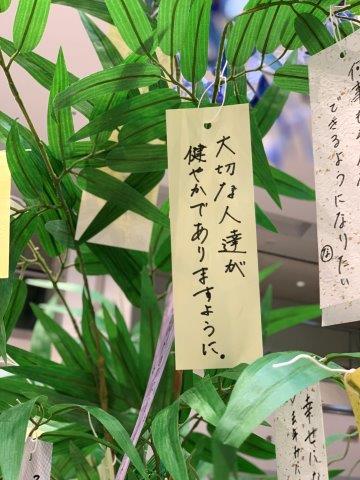 大切な人達が
健やかでありますように。
できるようになりたい
幸せに